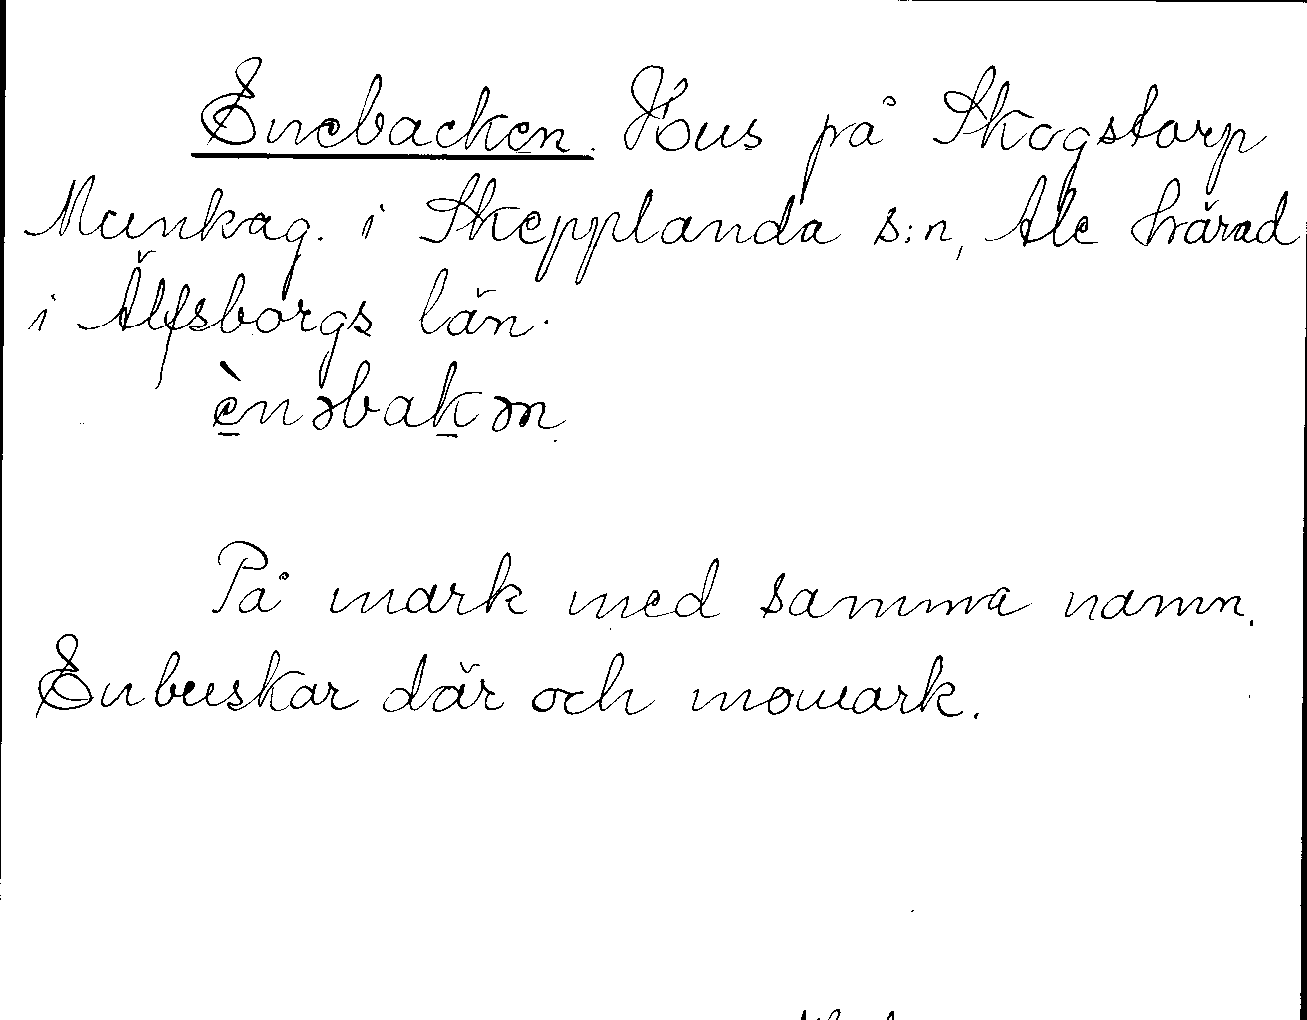 Enebacken. Hus på Skogstorp
Munkag. i Skepplanda s:n, Ale härad
i Älfsborgs län.
ènəbakən
På mark med samma namn.
Enbuskar där och momark.